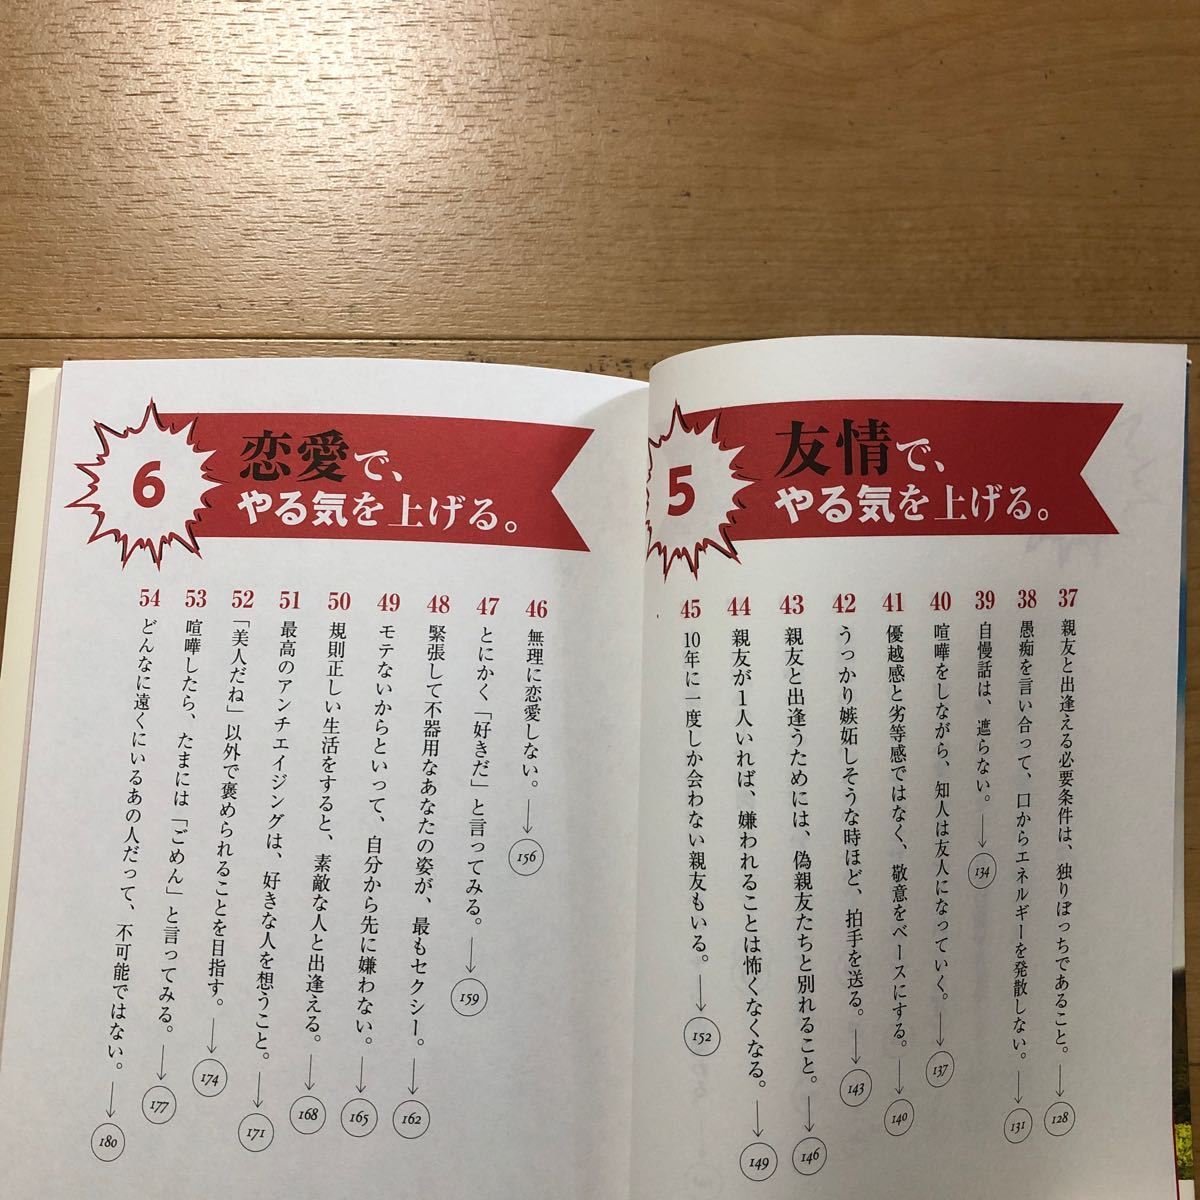 5
友情で、
やる気を上げる。
37 親友と出逢える必要条件は、独りぼっちであること。→128
38 愚痴を言い合って、口からエネルギーを発散しない。→131
39 自慢話は、遮らない。→134
40 喧嘩をしながら、知人は友人になっていく。→137
41 優越感と劣等感ではなく、敬意をベースにする。→140
42 うっかり嫉妬しそうな時ほど、拍手を送る。→143
43 親友と出逢うためには、偽親友たちと別れること。→146
44 親友が1人いれば、嫌われることは怖くなくなる。→149
45 10年に一度しか会わない親友もいる。→152
6
恋愛で、
やる気を上げる。
46 無理に恋愛しない。→156
47 とにかく「好きだ」と言ってみる。→159
48 緊張して不器用なあなたの姿が、最もセクシー。→162
49 モテないからといって、自分から先に嫌わない。→165
50 規則正しい生活をすると、素敵な人と出逢える。→168
51 最高のアンチエイジングは、好きな人を想うこと。→171
52 「美人だね」以外で褒められることを目指す。→174
53 喧嘩したら、たまには「ごめん」と言ってみる。→177
54 どんなに遠くにいるあの人だって、不可能ではない。→180